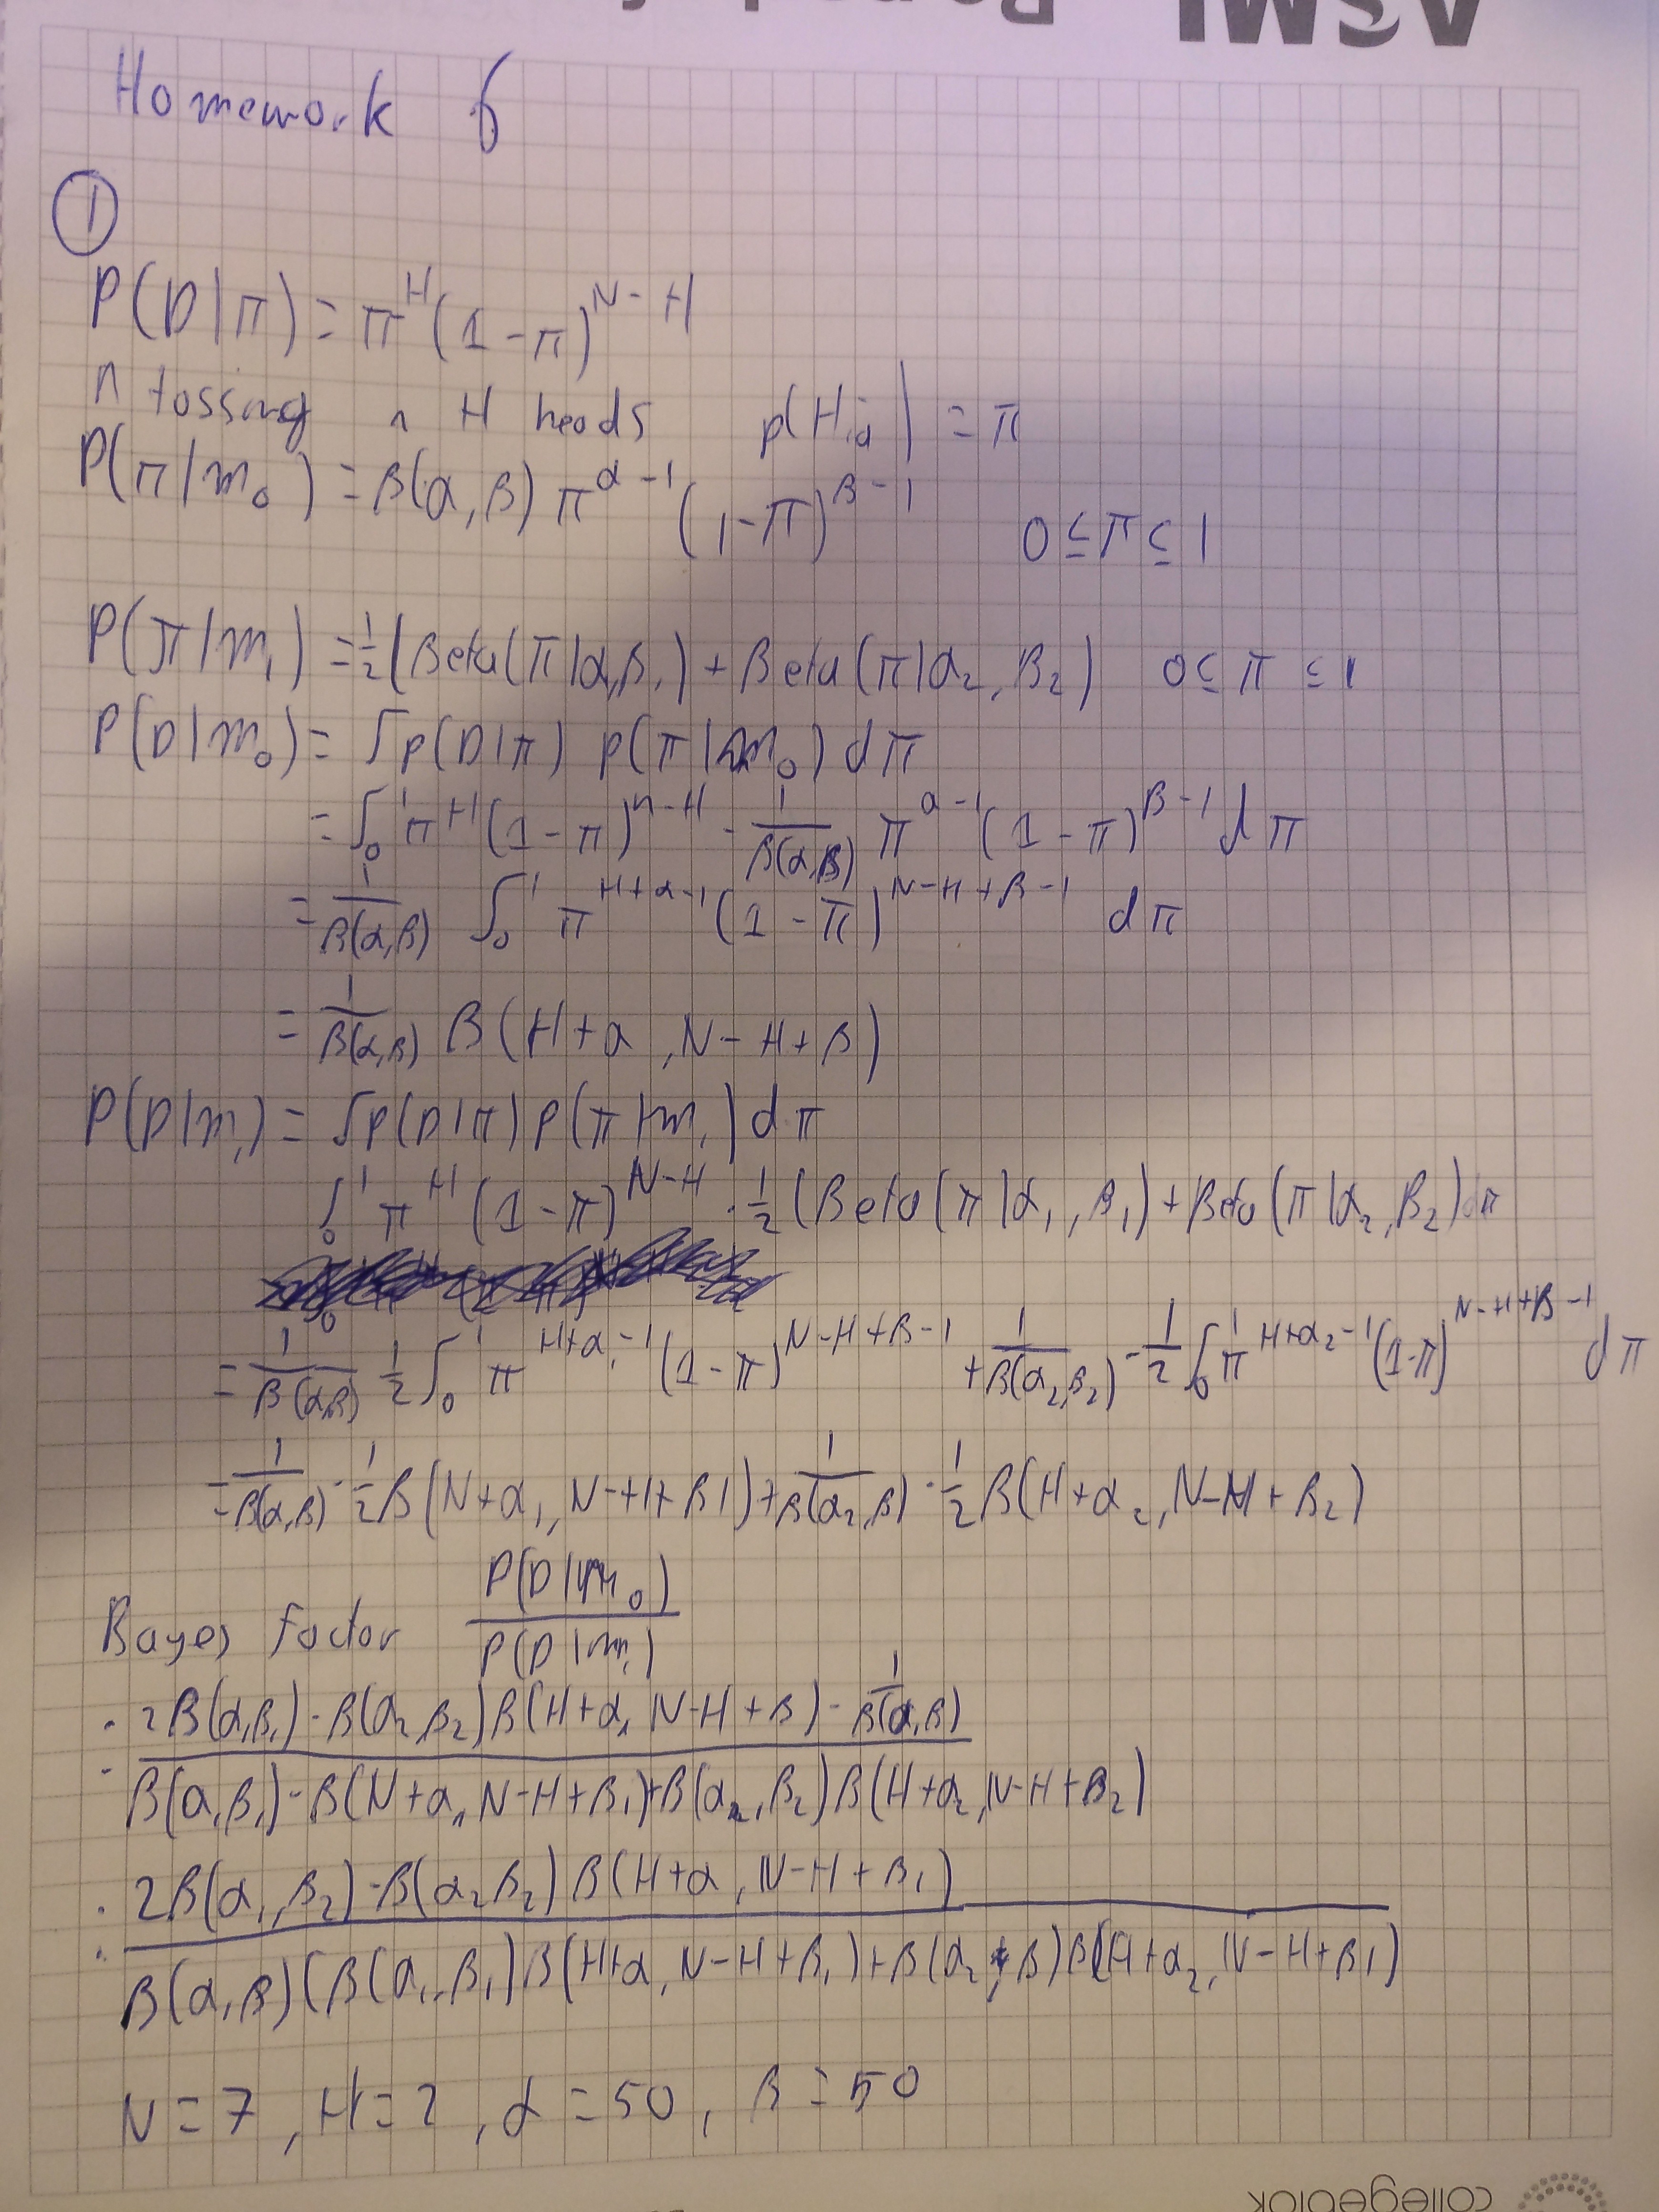 Homework 6
①
P(D|π) = π^H (1-π)^{N-H}
n tossing H heads p(H) = π
P(π|m₀) = B(α,β) π^{α-1} (1-π)^{β-1} 0≤π≤1
P(π|m₁) = 1/2 (Beta(π|α,β₁) + Beta(π|α₂,β₂) 0≤π≤1
P(D|m₀) = ∫p(D|π) p(π|m₀) dπ
= ∫₀¹ π^H (1-π)^{n-H} · 1/B(α,β) π^{α-1} (1-π)^{β-1} dπ
= 1/B(α,β) ∫₀¹ π^{H+α-1} (1-π)^{N-H+β-1} dπ
= 1/B(α,β) B(H+α, N-H+β)
P(D|m₁) = ∫p(D|π) p(π|m₁) dπ
∫₀¹ π^H (1-π)^{N-H} · 1/2 (Beta(π|α₁,β₁) + Beta(π|α₂,β₂) dπ
= 1/B(α,β) 1/2 ∫₀¹ π^{H+α₁-1} (1-π)^{N-H+β-1} + 1/B(α₂,β₂) · 1/2 ∫₀¹ π^{H+α₂-1} (1-π)^{N-H+β-1} dπ
= 1/B(α,β) · 1/2 B(N+α₁, N-H+β1) + 1/B(α₂,β) · 1/2 B(H+α₂, N-H+β₂)
Bayes factor P(D|m₀)/P(D|m₁)
: 2B(α,β₁)·B(α₂β₂)B(H+α, N-H+β)· 1/B(α,β)
B(α,β₁)·B(N+α, N-H+β₁)+B(α₂,β₂)B(H+α₂,N-H+β₂)
: 2B(α₁,β₂)·B(α₂β₂) B(H+α, N-H+β₁)
B(α,β)(B(α₁,β₁)B(H+α, N-H+β₁)+B(α₂,β)B(H+α₂, N-H+β1)
N=7, H=2, α=50, β=50
collegeblok